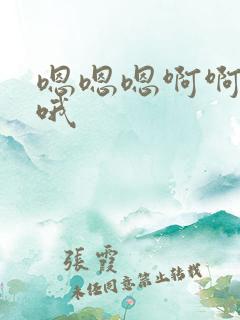 嗯嗯嗯啊啊
哦
張霞
未经同意禁止转载